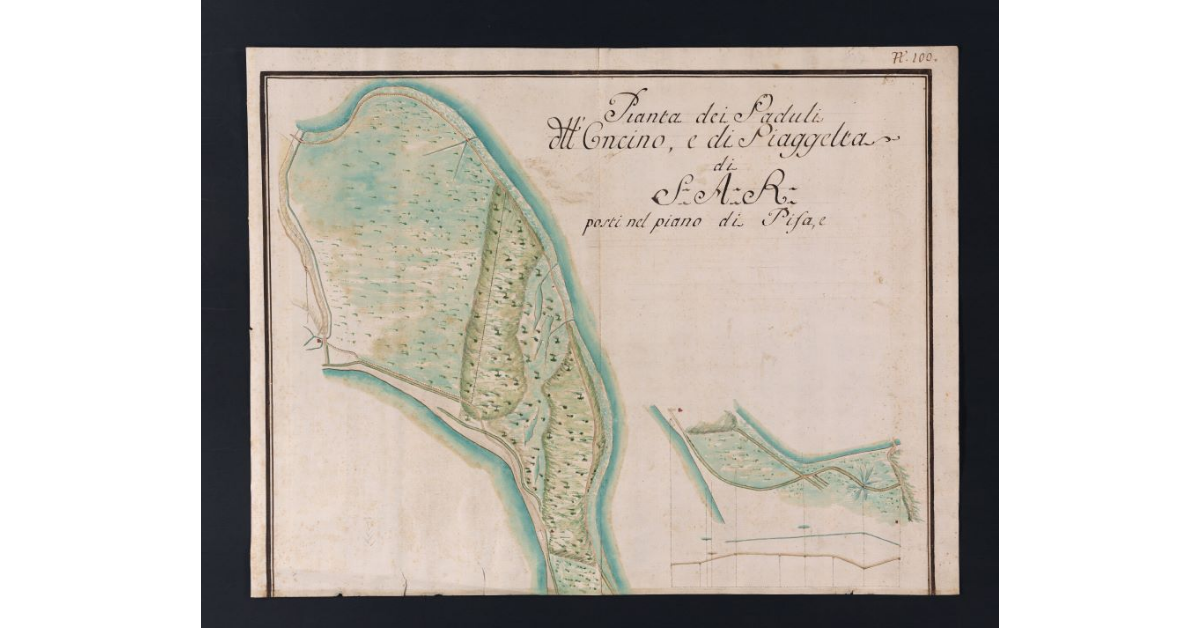 N.º 100.
Pianta dei Paduli
dell' Oncino, e di Piaggelta
di
S. A. R.
posti nel piano di Pisa, e